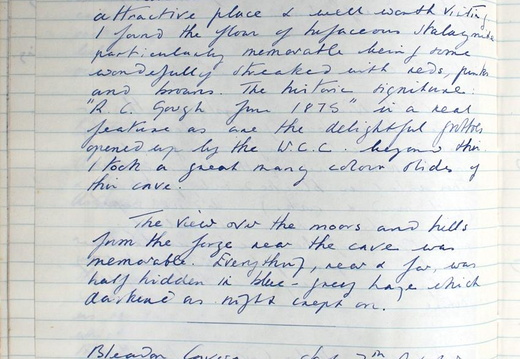 attractive place & well worth visiting
I found the floor of tufaceous stalagmite
particularly memorable being some
wonderfully streaked with reds, pinks
and browns. The historic signature:
"R. C. Gough June 1875" is a real
feature as are the delightful grottoes
opened up by the W.C.C. beyond this
I took a great many colour slides of
this cave.
The view over the moors and hills
from the gorge near the cave was
memorable. Everything, near & far, was
half hidden in blue-grey haze which
darkened as night crept on.
Bleadon Cavern